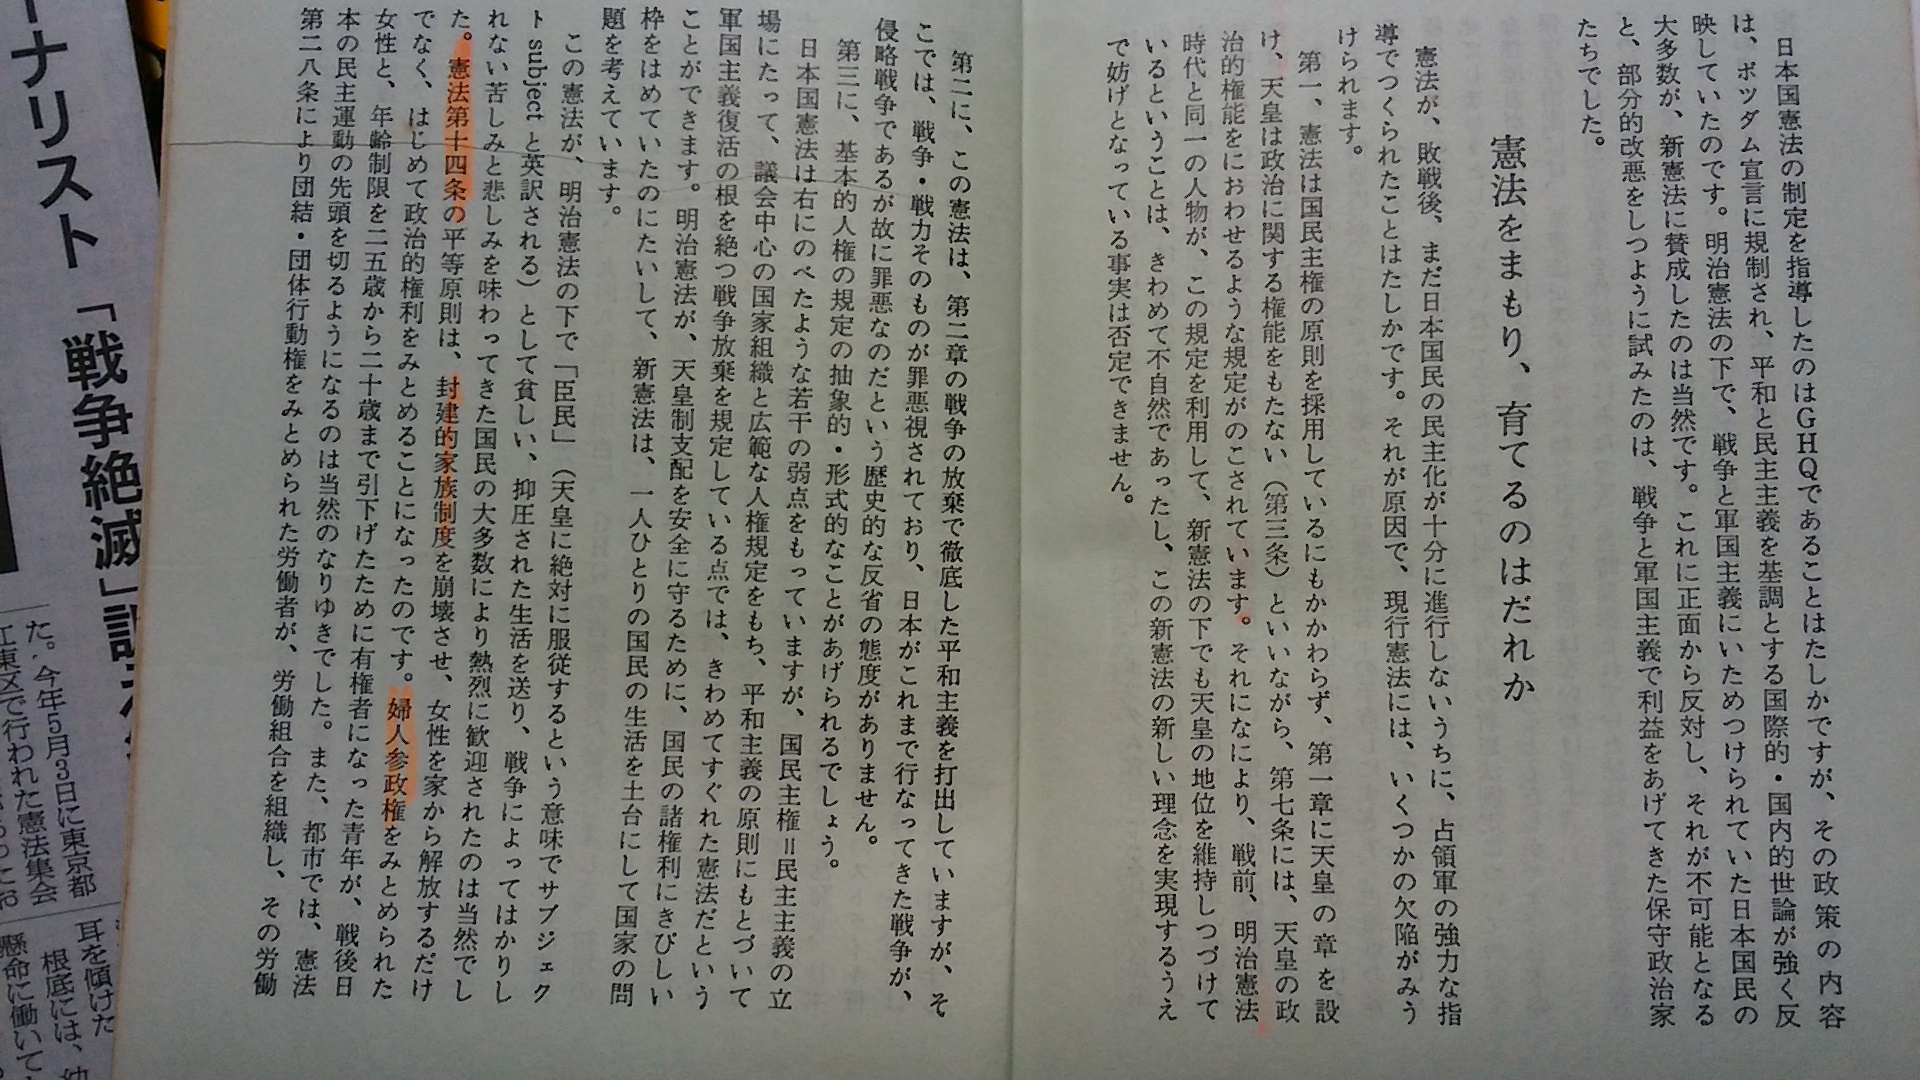 日本国憲法の制定を指導したのはGHQであることはたしかですが、その政策の内容
は、ポツダム宣言に規制され、平和と民主主義を基調とする国際的・国内的世論が強く反
映していたのです。明治憲法の下で、戦争と軍国主義にいためつけられていた日本国民の
大多数が、新憲法に賛成したのは当然です。これに正面から反対し、それが不可能となる
と、部分的改悪をしつように試みたのは、戦争と軍国主義で利益をあげてきた保守政治家
たちでした。
憲法をまもり、育てるのはだれか
憲法が、敗戦後、まだ日本国民の民主化が十分に進行しないうちに、占領軍の強力な指
導でつくられたことはたしかです。それが原因で、現行憲法には、いくつかの欠陥がみう
けられます。
第一、憲法は国民主権の原則を採用しているにもかかわらず、第一章に天皇の章を設
け、天皇は政治に関する権能をもたない（第三条）といいながら、第七条には、天皇の政
治的権能をにおわせるような規定がのこされています。それになにより、戦前、明治憲法
時代と同一の人物が、この規定を利用して、新憲法の下でも天皇の地位を維持しつづけて
いるということは、きわめて不自然であったし、この新憲法の新しい理念を実現するうえ
で妨げとなっている事実は否定できません。
第二に、この憲法は、第二章の戦争の放棄で徹底した平和主義を打出していますが、そ
こでは、戦争・戦力そのものが罪悪視されており、日本がこれまで行なってきた戦争が、
侵略戦争であるが故に罪悪なのだという歴史的な反省の態度がありません。
第三に、基本的人権の規定の抽象的・形式的なことがあげられるでしょう。
日本国憲法は右にのべたような若干の弱点をもっていますが、国民主権＝民主主義の立
場にたって、議会中心の国家組織と広範な人権規定をもち、平和主義の原則にもとづいて
軍国主義復活の根を絶つ戦争放棄を規定している点では、きわめてすぐれた憲法だという
ことができます。明治憲法が、天皇制支配を安全に守るために、国民の諸権利にきびしい
枠をはめていたのにたいして、新憲法は、一人ひとりの国民の生活を土台にして国家の問
題を考えています。
この憲法が、明治憲法の下で「臣民」（天皇に絶対に服従するという意味でサブジェク
ト subject と英訳される）として貧しい、抑圧された生活を送り、戦争によってはかりし
れない苦しみと悲しみを味わってきた国民の大多数により熱烈に歓迎されたのは当然でし
た。憲法第十四条の平等原則は、封建的家族制度を崩壊させ、女性を家から解放するだけ
でなく、はじめて政治的権利をみとめることになったのです。婦人参政権をみとめられた
女性と、年齢制限を二五歳から二十歳まで引下げたために有権者になった青年が、戦後日
本の民主運動の先頭を切るようになるのは当然のなりゆきでした。また、都市では、憲法
第二八条により団結・団体行動権をみとめられた労働者が、労働組合を組織し、その労働
ーナリスト「戦争絶滅」訴
た。今年5月3日に東京都
江東区で行われた憲法集会
耳を傾けた
根底には、幼
懸命に働いて